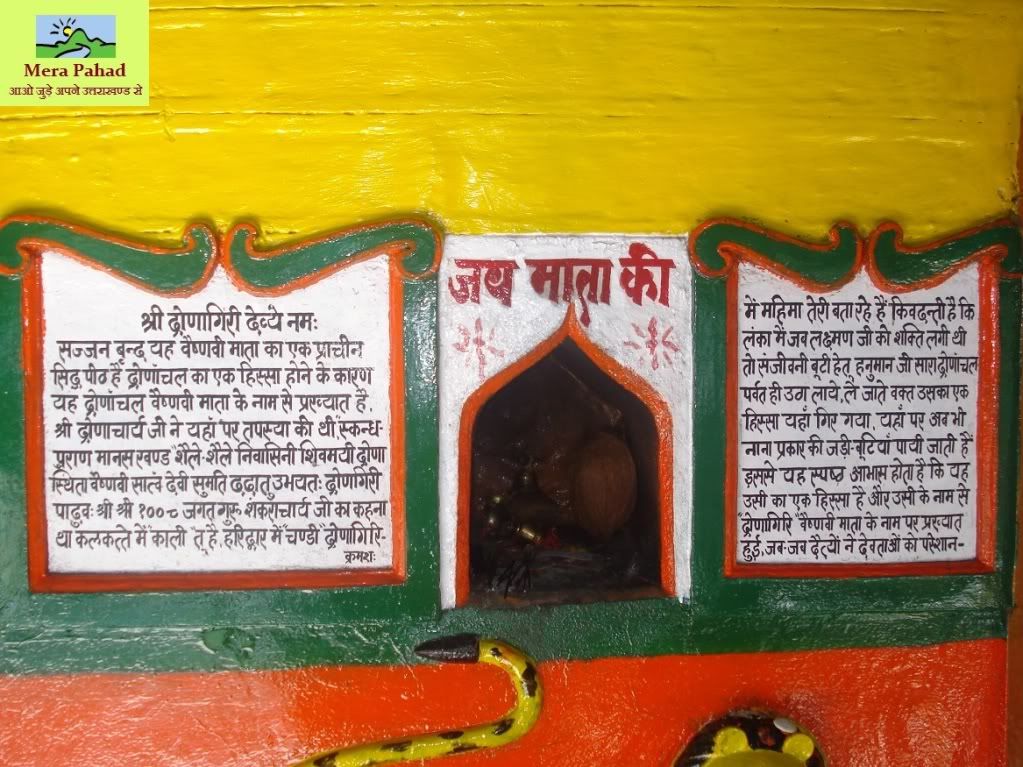 Mera Pahad
आओ जुड़े अपने उत्तराखण्ड से
जय माता की
श्री द्रोणागिरी देव्यै नमः
सज्जन बृन्द यह वैष्णवी माता का एक प्राचीन
सिद्ध पीठ है द्रोणांचल का एक हिस्सा होने के कारण
यह द्रोणांचल वैष्णवी माता के नाम से प्रख्यात है,
श्री द्रोणाचार्य जी ने यहाँ पर तपस्या की थी, स्कन्ध-
पुराण मानस खण्ड शैले-शैले निवासिनी शिवमयी द्रोणा
स्थिता वैष्णवी सात्व देवी सुमति दृढ़ातु उभयतः द्रोणगिरी
पादुवः श्री श्री १००८ जगत गुरू शंकराचार्य जी का कहना
था कलकत्ते में काली तू है, हरिद्वार में चण्डी द्रोणागिरि-
क्रमशः
में महिमा तेरी बता रहे हैं किवदन्ती है कि
लंका में जब लक्ष्मण जी की शक्ति लगी थी
तो संजीवनी बूटी हेतु हनुमान जी सारा द्रोणांचल
पर्वत ही उठा लाये, ले जाते वक्त उसका एक
हिस्सा यहाँ गिर गया, यहाँ पर अब भी
नाना प्रकार की जड़ी-बूटियाँ पायी जाती हैं
इससे यह स्पष्ट आभास होता है कि यह
उसी का एक हिस्सा है और उसी के नाम से
"द्रोणागिरि" वैष्णवी माता के नाम पर प्रख्यात
हुई, जब-जब दैत्यों ने देवताओं को परेशान-